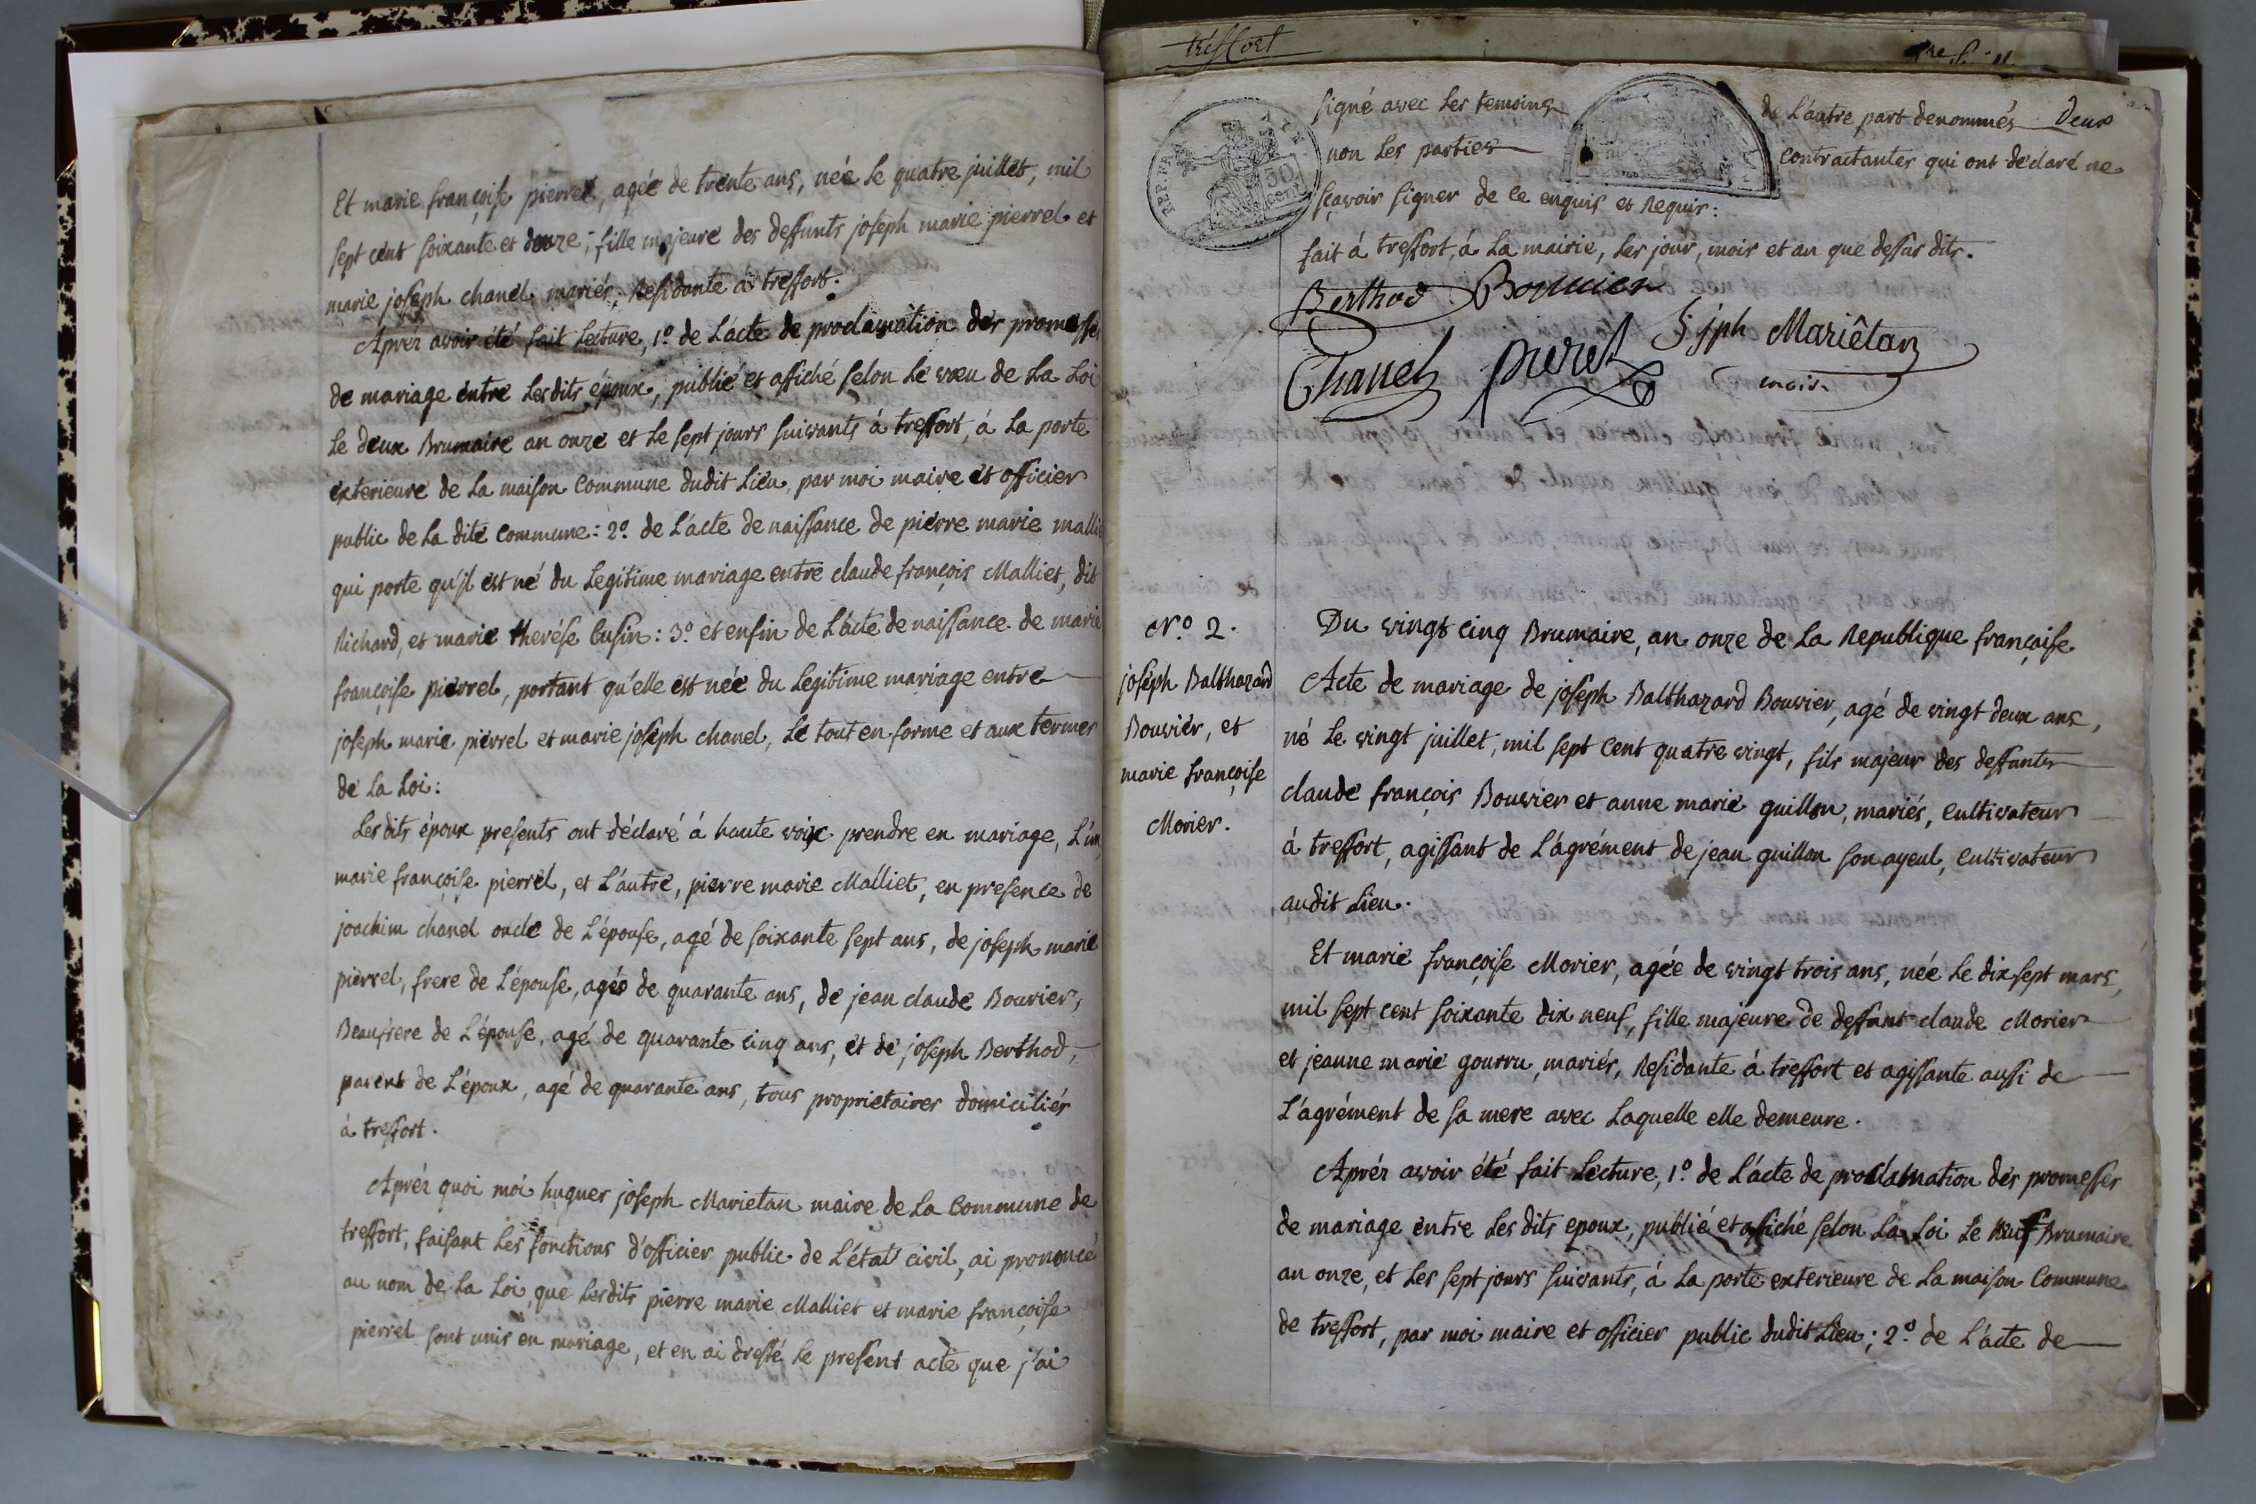 Et marie françoise pierrel, agée de trente ans, née le quatre juillet, mil
sept cent soixante et douze; fille majeure des deffunts joseph marie pierrel et
marie joseph chanel, mariés; Residante à treffort.
Aprés avoir été fait lecture, 1.º de L'acte de proclamation des promesses
de mariage entre lesdits époux, publié et affiché selon le vœu de La Loi
Le deux Brumaire an onze et le sept jours suivants à treffort, à La porte
exterieure de La maison commune dudit Lieu, par moi maire et officier
public de La dite commune: 2.º de L'acte de naissance de pierre marie malliet
qui porte qu'il est né du Legitime mariage entre claude françois Malliet, dit
Richard, et marie therése Cusin: 3.º et enfin de L'acte de naissance de marie
françoise pierrel, portant qu'elle est née du Legitime mariage entre
joseph marie pierrel et marie joseph chanel, Le tout en forme et aux termes
de La Loi:
Lesdits époux presents ont déclaré à haute voix prendre en mariage, L'un,
marie françoise pierrel, et L'autre, pierre marie Malliet, en presence de
joachim chanel oncle de L'épouse, agé de soixante sept ans, de joseph marie
pierrel, frere de L'épouse, agés de quarante ans, de jean claude Bouvier,
Beaufrere de L'épouse, agé de quarante cinq ans, et de joseph Berthod,
parent de L'époux, agé de quarante ans, tous proprietaires domiciliés
à treffort.
Aprés quoi moi hugues joseph Marietan maire de La Commune de
treffort, faisant Les fonctions d'officier public de L'état civil, ai prononcé
au nom de La Loi, que lesdits pierre marie Malliet et marie françoise
pierrel sont unis en mariage, et en ai dressé le present acte que j'ai
treffort
signé avec Les temoins de L'autre part denommés Deux
non Les parties contractantes qui ont déclaré ne
sçavoir signer de ce enquis et Requis:
REP. FRA
50
cent
fait à treffort, à La mairie, Les jour, mois et an que dessus dits.
Berthod Bouvier
Chanel pieret h jph Mariétan
maire
N.º 2.
joseph Balthazard
Bouvier, et
marie françoise
Morier.
Du vingt cinq Brumaire, an onze de La Republique françoise
Acte de mariage de joseph Balthazard Bouvier, agé de vingt deux ans,
né Le vingt juillet, mil sept cent quatre vingt, fils majeur des deffunts
claude françois Bouvier et anne marie guillon, mariés, cultivateur
à treffort, agissant de L'agrément de jean guillon son ayeul, cultivateur
audit Lieu.
Et marie françoise Morier, agée de vingt trois ans, née Le dix sept mars,
mil sept cent soixante dix neuf, fille majeure de deffunt claude Morier
et jeanne marie gourru, mariés, Residante à treffort et agissante aussi de
L'agrément de sa mere avec Laquelle elle demeure.
Aprés avoir été fait Lecture, 1.º de L'acte de proclamation des promesses
de mariage entre Les dits epoux, publié et affiché selon La Loi Le Neuf Brumaire
an onze, et Les sept jours suivants, à La porte exterieure de La maison Commune
de treffort, par moi maire et officier public dudit Lieu; 2.º de L'acte de